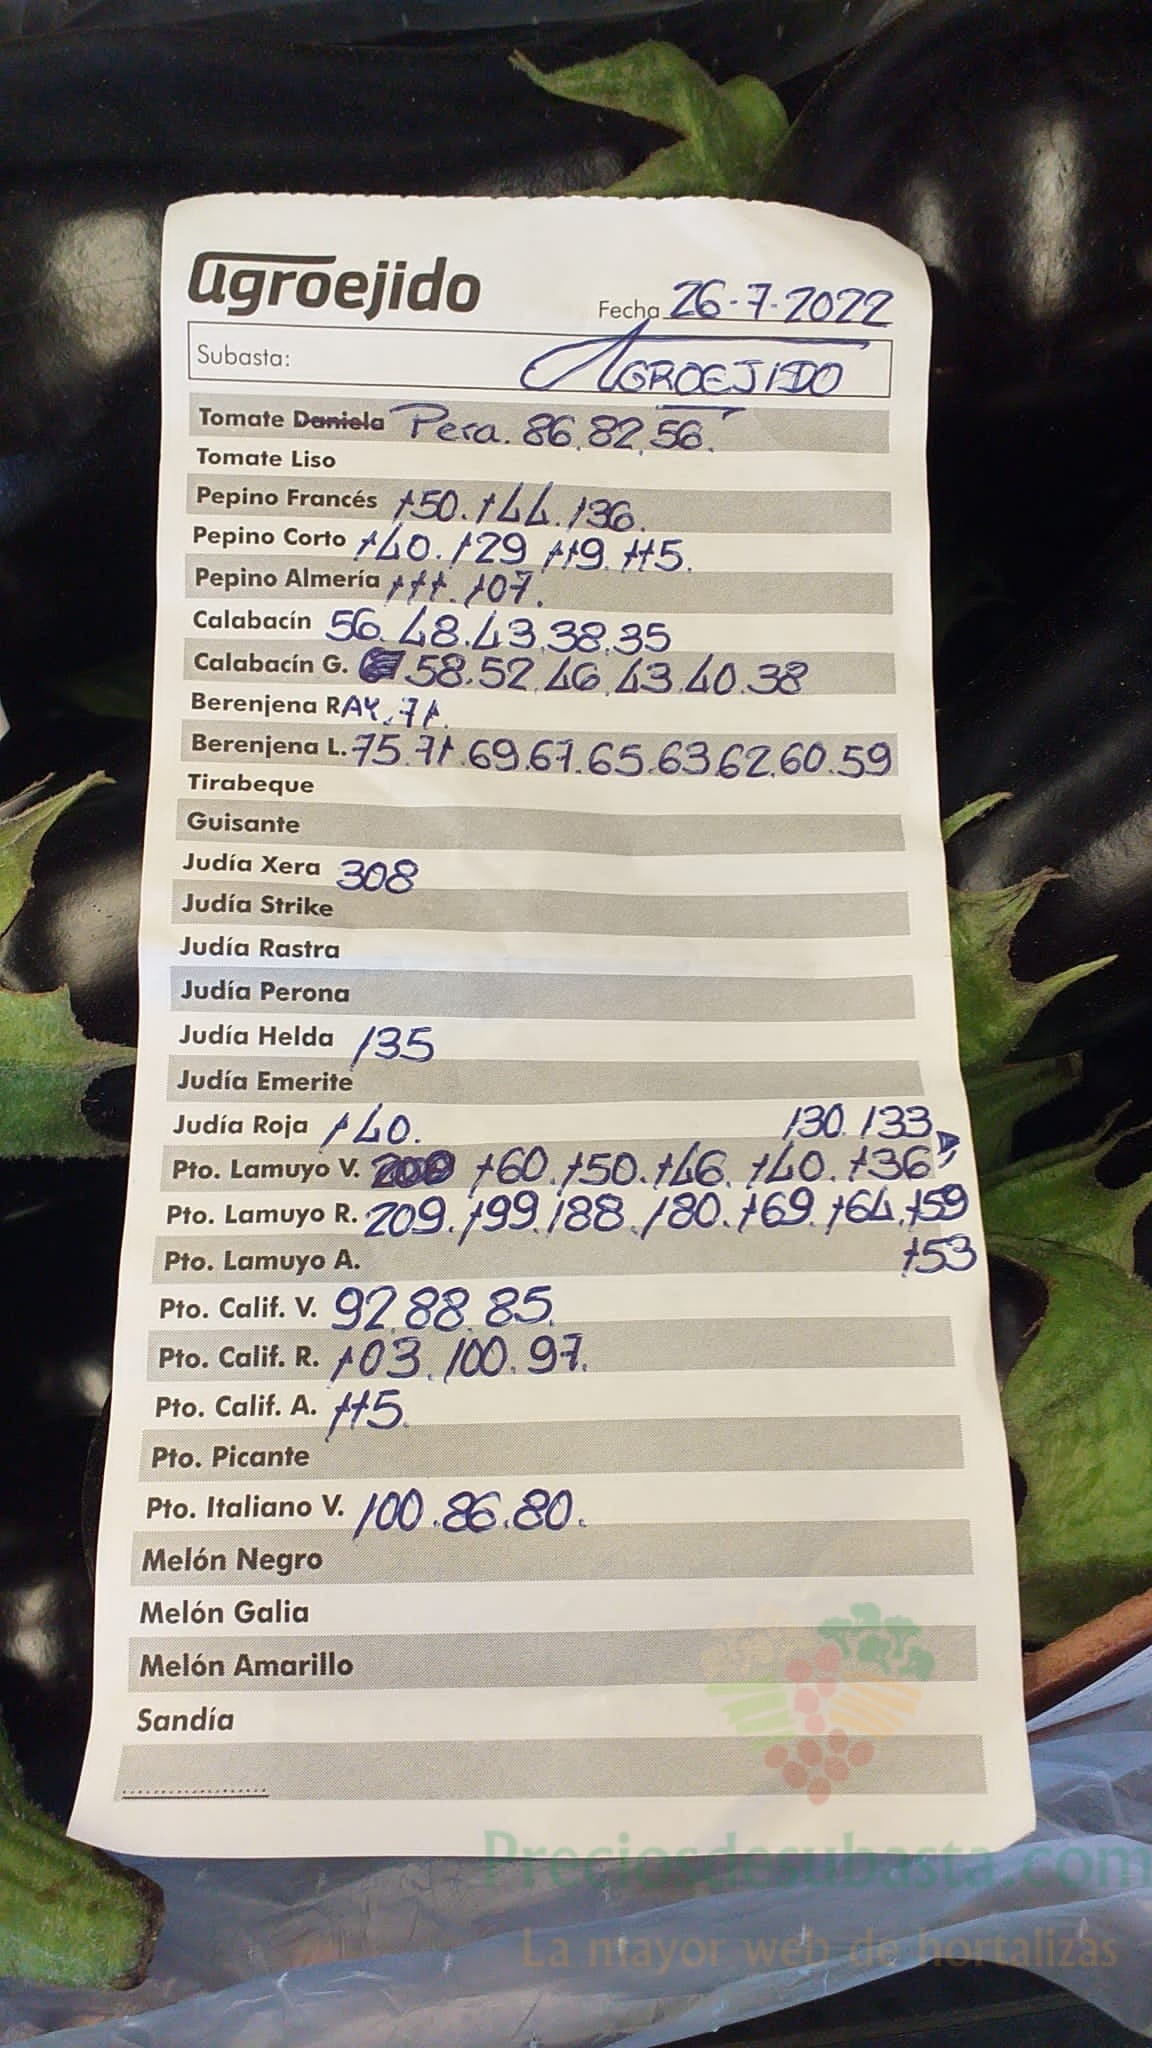 agroejido
Fecha 26-7-2022
Subasta: AGROEJIDO
Tomate Daniela Pera. 86.82.56.
Tomate Liso
Pepino Francés 150.144.136.
Pepino Corto 140.129 119.115.
Pepino Almería 111.107.
Calabacín 56.48.43.38.35
Calabacín G. 58.52.46.43.40.38
Berenjena RAY.71.
Berenjena L. 75.71.69.67.65.63.62.60.59
Tirabeque
Guisante
Judía Xera 308
Judía Strike
Judía Rastra
Judía Perona
Judía Helda 135
Judía Emerite
Judía Roja 140. 130.133
Pto. Lamuyo V. 160.150.146.140.136
Pto. Lamuyo R. 209.199.188.180.169.164.159
Pto. Lamuyo A. 153
Pto. Calif. V. 92.88.85.
Pto. Calif. R. 103.100.97.
Pto. Calif. A. 115.
Pto. Picante
Pto. Italiano V. 100.86.80.
Melón Negro
Melón Galia
Melón Amarillo
Sandía
Preciosdesubasta.com
La mayor web de hortalizas